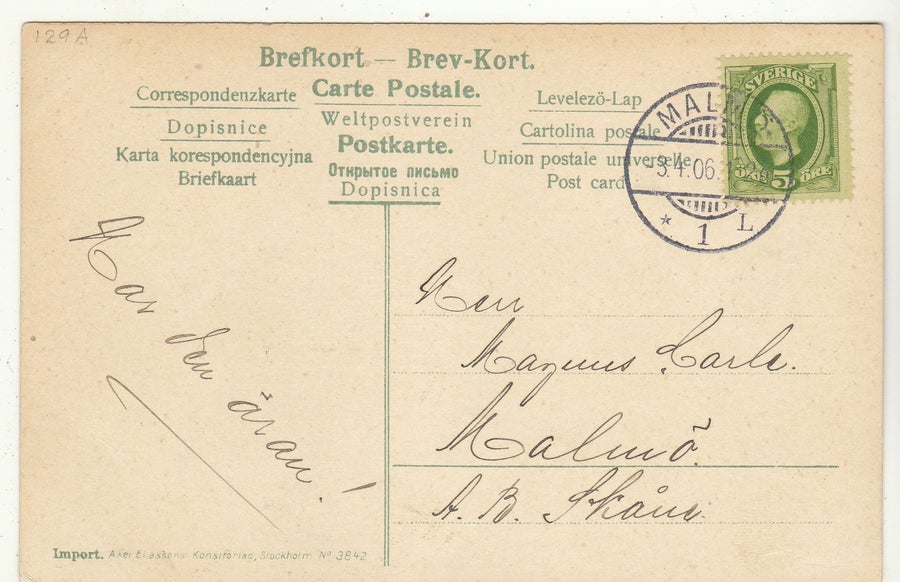 129A
Brefkort — Brev-Kort.
Correspondenzkarte
Carte Postale.
Levelező-Lap
Dopisnice
Weltpostverein
Cartolina postale
Karta korespondencyjna
Postkarte.
Union postale universelle
Briefkaart
Открытое письмо
Post card
Dopisnica
SVERIGE
ÖRE 5 ÖRE
MALMÖ
3.4.06.
* 1 L
Har den äran!
Herr
Magnus Carle.
Malmö
A. B. Skåne
Import. Axel Eliassons Konstförlag, Stockholm Nº 3842